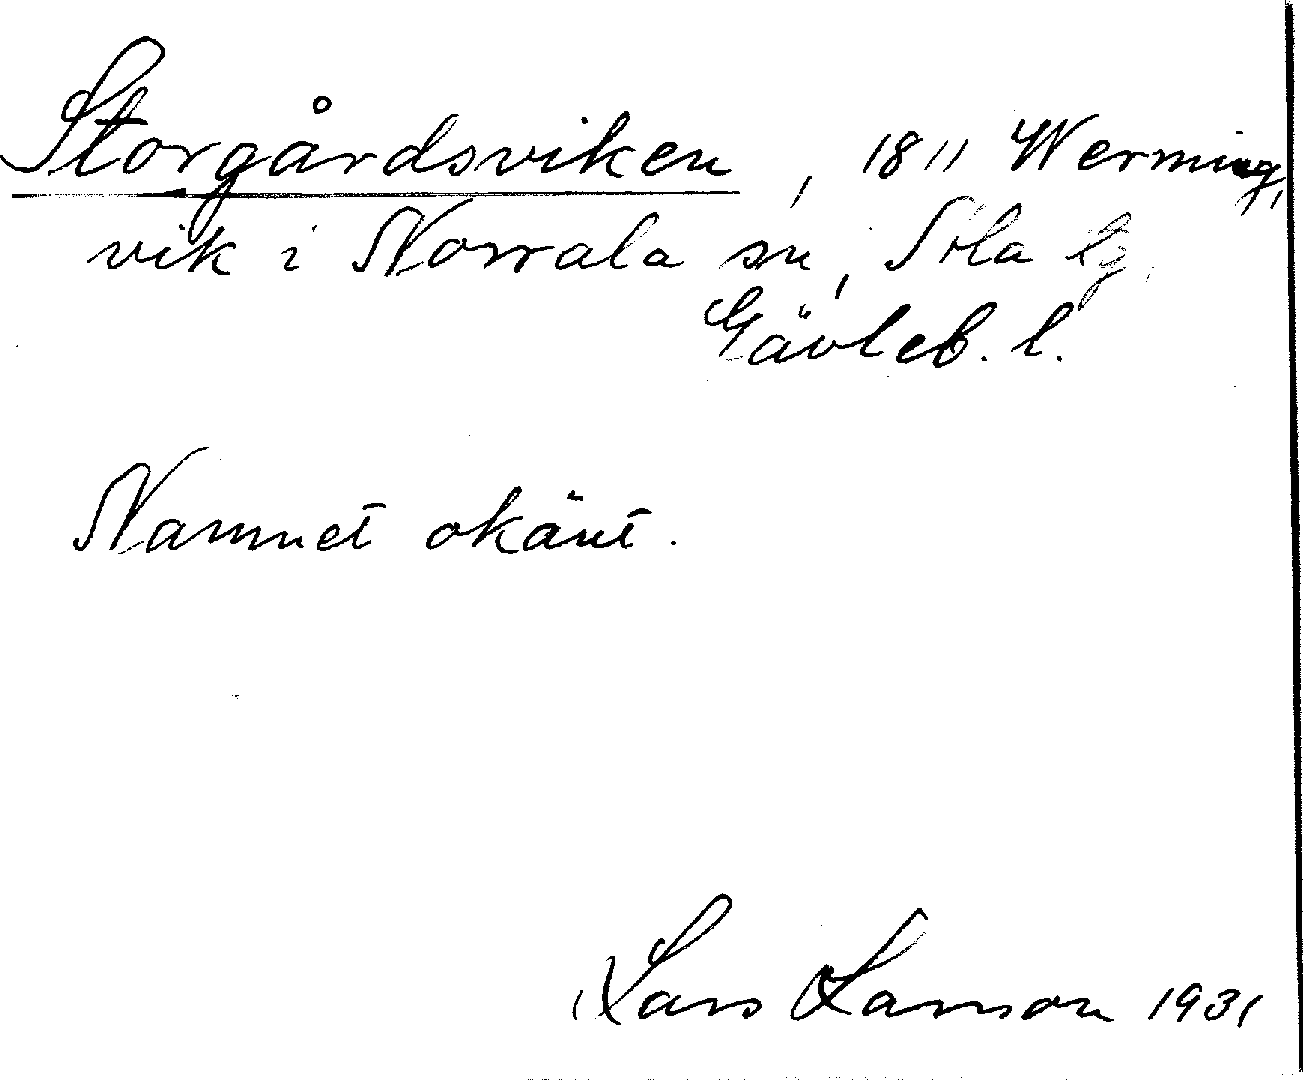 Storgårdsviken, 1811 Werming,
vik i Norrala sn, Ala tg,
Gävleb. l.
Namnet okänt.
Lars Larsson 1931